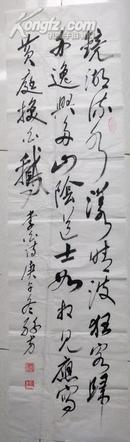 镜湖流水漾清波狂客归
舟逸兴多山阴道士如相见应写
黄庭换白鹅 李白诗 庚午冬